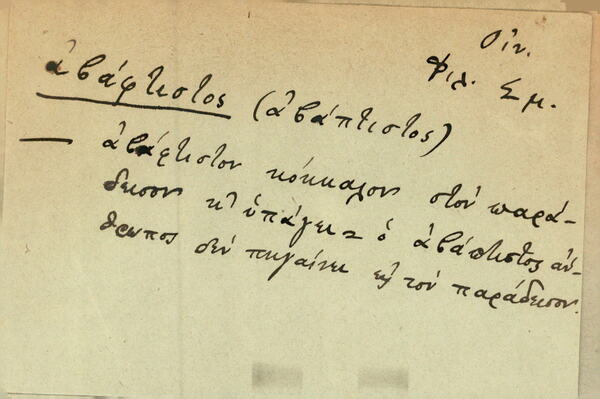 Οἰν.
Φιλ. Σμ.
ἀβάφτιστος (ἀβάπτιστος)
— ἀβάφτιστον κόκκαλον στὸν παρά-
δεισον κ̓ ὑπάγει = ὁ ἀβάπτιστος ἄν-
θρωπος δὲν πηγαίνει εἰς τὸν παράδεισον.